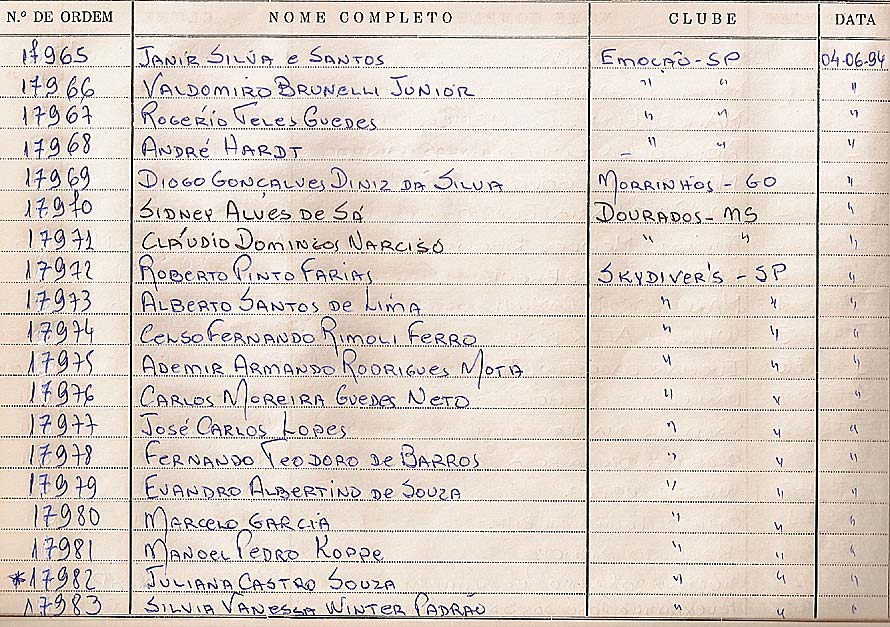 N.º DE ORDEM NOME COMPLETO CLUBE DATA
17965 JANIR SILVA e SANTOS EMOÇÃO-SP 04-06-94
17966 VALDOMIRO BRUNELLI JUNIOR " " "
17967 ROGERIO TELES GUEDES " " "
17968 ANDRÉ HARDT " " "
17969 DIOGO GONÇALVES DINIZ DA SILVA MORRINHOS - GO "
17970 SIDNEY ALVES DE SÁ DOURADOS-MS "
17971 CLÁUDIO DOMINGOS NARCISO " " "
17972 ROBERTO PINTO FARIAS SKYDIVER'S - SP "
17973 ALBERTO SANTOS DE LIMA " " "
17974 CELSO FERNANDO RIMOLI FERRO " " "
17975 ADEMIR ARMANDO RODRIGUES MOTA " " "
17976 CARLOS MOREIRA GUEDES NETO " " "
17977 JOSÉ CARLOS LOPES " " "
17978 FERNANDO TEODORO DE BARROS " " "
17979 EVANDRO ALBERTINO DE SOUZA " " "
17980 MARCELO GARCIA " " "
17981 MANOEL PEDRO KOPPE " " "
*17982 JULIANA CASTRO SOUZA " " "
17983 SILVIA VANESSA WINTER PADRÃO " " "